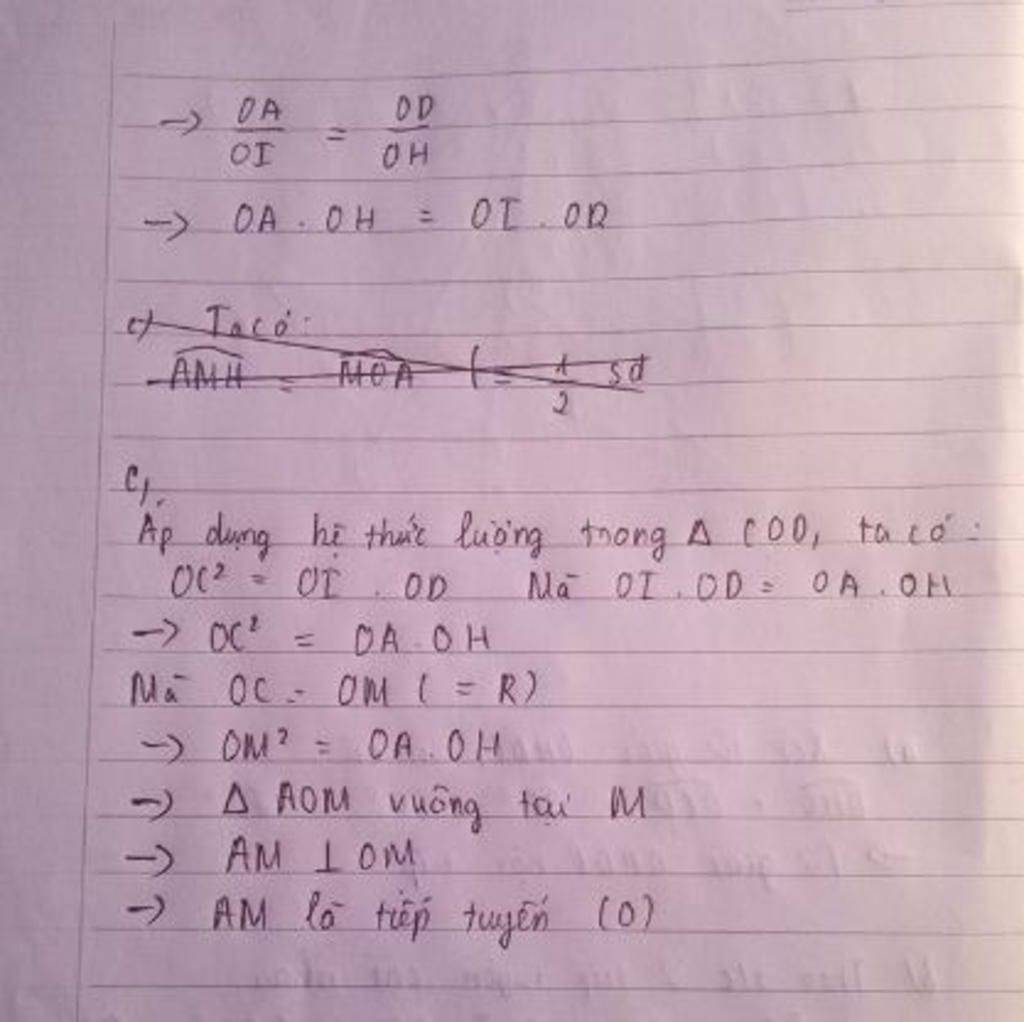 → OA/OI = OD/OH
→ OA . OH = OI . OD
c) Ta có:
AMH = MOA ( = 1/2 sđ
c,
Áp dụng hệ thức lượng trong Δ COD, ta có:
OC² = OI . OD Mà OI . OD = OA . OH
→ OC² = OA . OH
Mà OC = OM ( = R)
→ OM² = OA . OH
→ Δ AOM vuông tại M
→ AM ⊥ OM
→ AM là tiếp tuyến (O)